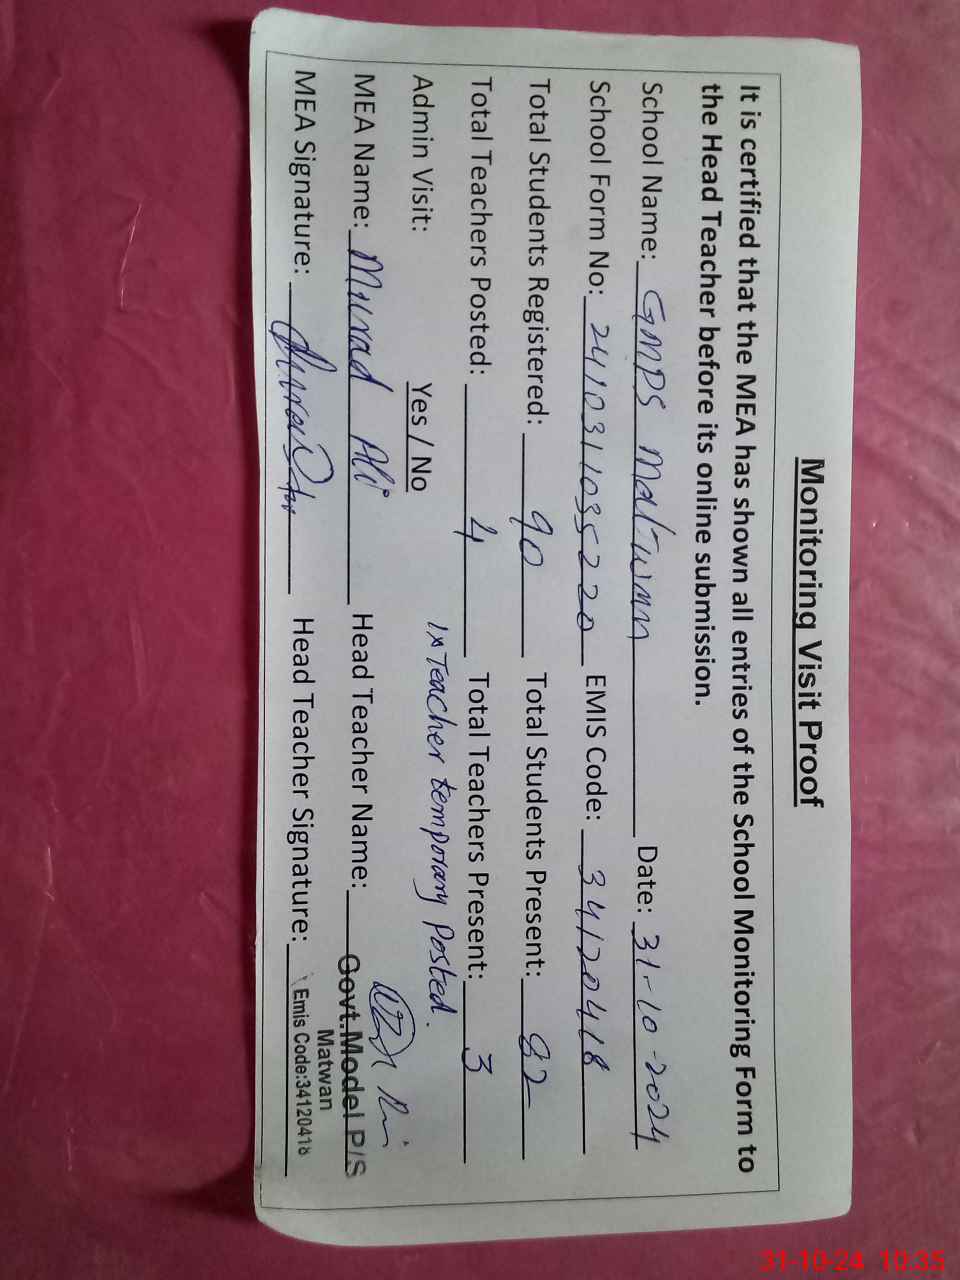 Monitoring Visit Proof
It is certified that the MEA has shown all entries of the School Monitoring Form to
the Head Teacher before its online submission.
School Name: GMPS Matwan Date: 31-10-2024
School Form No: 2410311035220 EMIS Code: 34120418
Total Students Registered: 90 Total Students Present: 82
Total Teachers Posted: 4 Total Teachers Present: 3
Admin Visit: Yes / No 1x Teacher temporary Posted.
MEA Name: Murad Ali Head Teacher Name: Govt.Model P/S
Matwan
MEA Signature: Head Teacher Signature: Emis Code:34120418
31-10-24 10:35